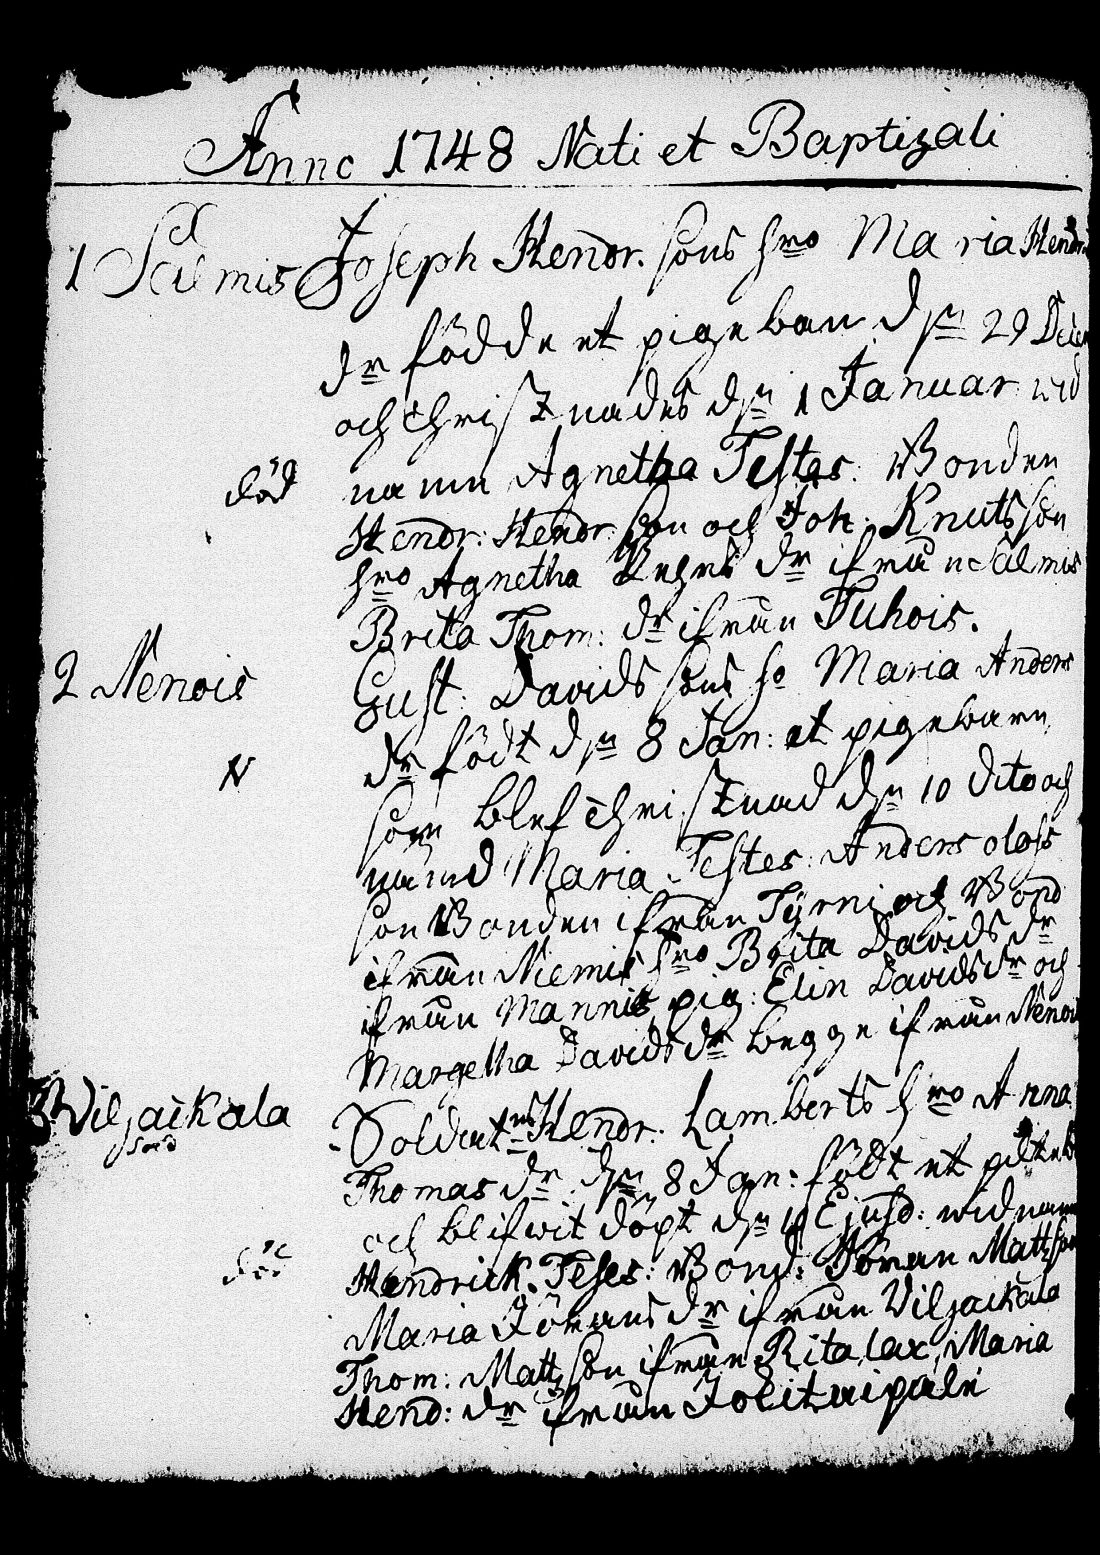 Anno 1748 Nati et Baptizati
1 Salmis Joseph Hendr. sons hro Maria Hendr
dr födde et pigebarn dn 29 Decem
och Christnades dn 1 Januar wid
död namn Agnetha Testes: Bonden
Hendr: Hendr: son och Joh: Knutsson
hro Agnetha dr ifrån Salmis
Brita Thom: dr ifrån Tuhois.
2 Nenois Gust: Davids sons ho Maria Anders
dr födt dn 8 Jan: et pigebarn
N
som blef Christnad dn 10 dito och
nämd Maria Testes: Anders olofs
son Bonden ifrån Tyrni och Bond
ifrån Niemis hro Brita Davids dr
ifrån Mannis pig: Elin Davids dr och
Margetha Davids dr begge ifrån Nenois
3 Viljaikala Soldatns Hendr: Lamberts hro Anna
Thomas dr dn 8 Jan: födt et pilteb
och blifwit döpt dn Ejusd: wid namn
död Hendrick. Testes: Bond: Jöran Mattsson
Maria Jörans dr ifrån Viljaikala
Thom: Mattsson ifrån Ritalax, Maria
Hend: dr ifrån